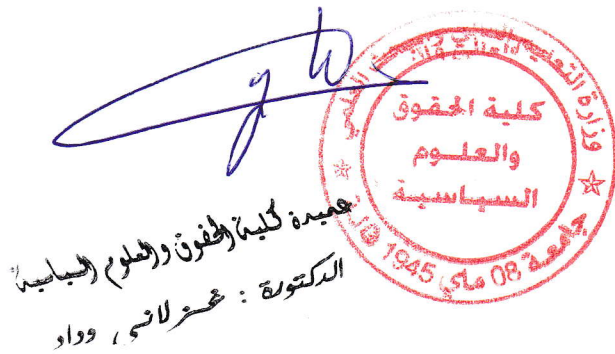 وزارة التعليم العالي والبحث العلمي
كلية الحقوق
والعلوم
السياسية
جامعة 08 ماي 1945
عميدة كلية الحقوق والعلوم السياسية
الدكتورة : غزلاني وداد